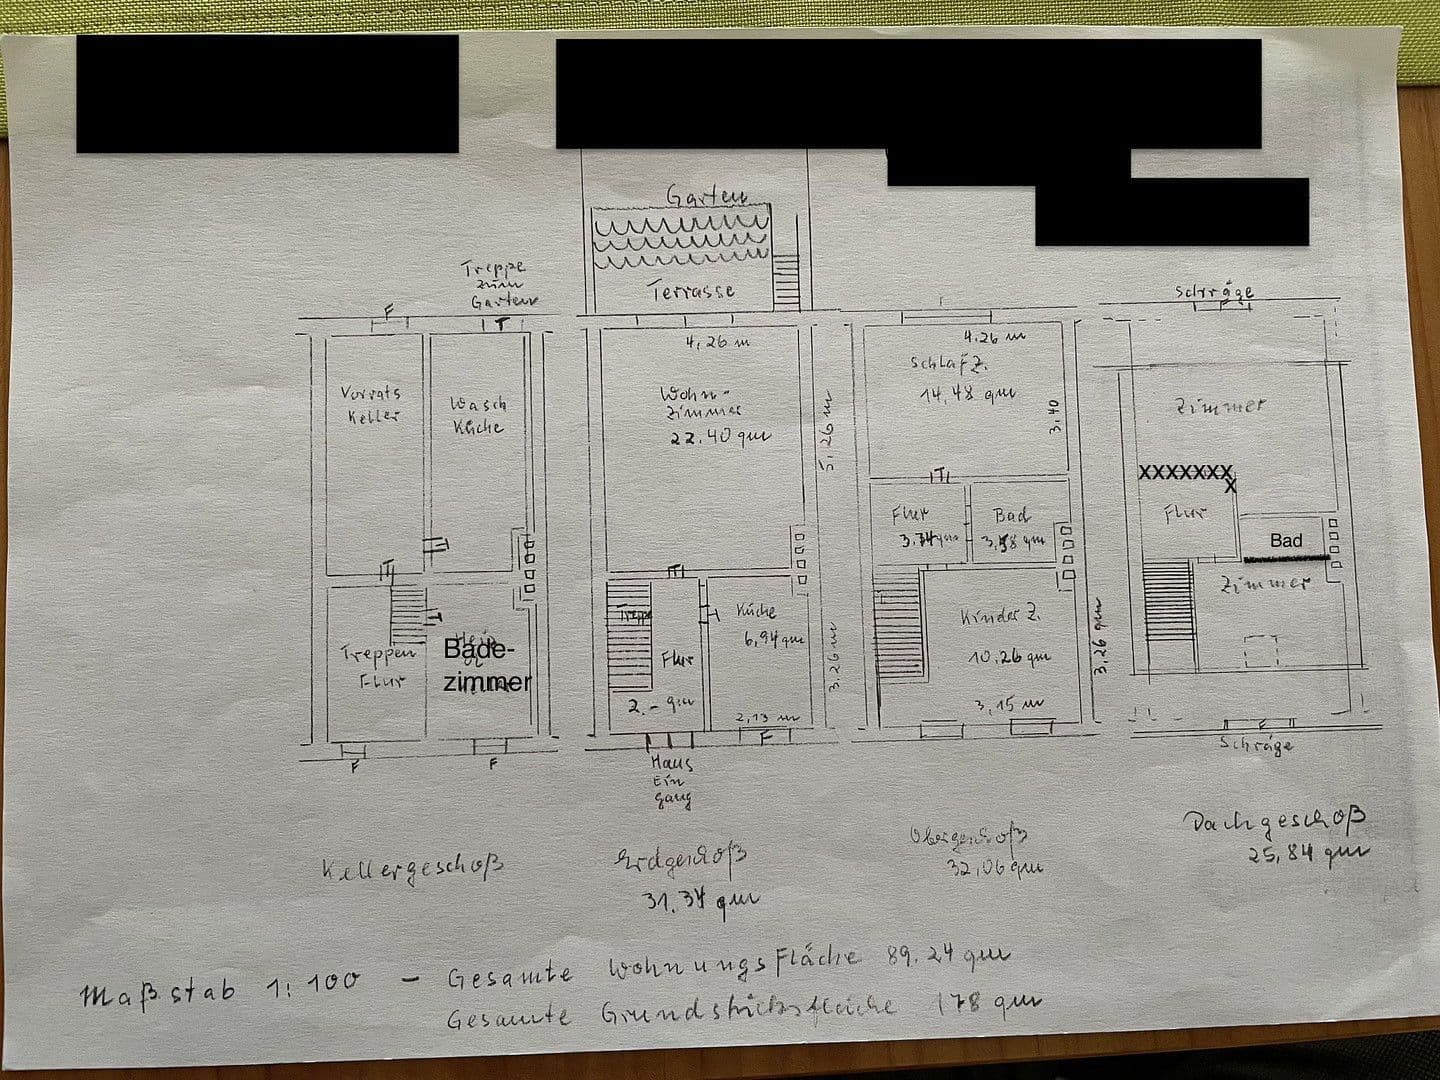 Garten
Terrasse
Treppe
zum
Garten
F
T
Vorrats
Keller
Wasch
Küche
T
Treppen
Flur
Bade-
zimmer
F
F
Kellergeschoß
4,26 m
Wohn-
zimmer
22.40 qm
5,26 m
T
Treppe
Flur
2.- qm
Küche
6,94 qm
3.26 m
2,13 m
F
Haus
Ein
gang
Erdgeschoß
31.34 qm
4.26 m
SchlafZ.
14,48 qm
3,40
T
Flur
3.74 qm
Bad
3,58 qm
Kinder Z.
10,26 qm
3,26 qm
3,15 m
Obergeschoß
32,06 qm
Schräge
F
Zimmer
XXXXXXX
X
Flur
Bad
Zimmer
F
Schräge
Dachgeschoß
25,84 qm
Maßstab 1:100 - Gesamte Wohnungsfläche 89.24 qm
Gesamte Grundstücksfläche 178 qm